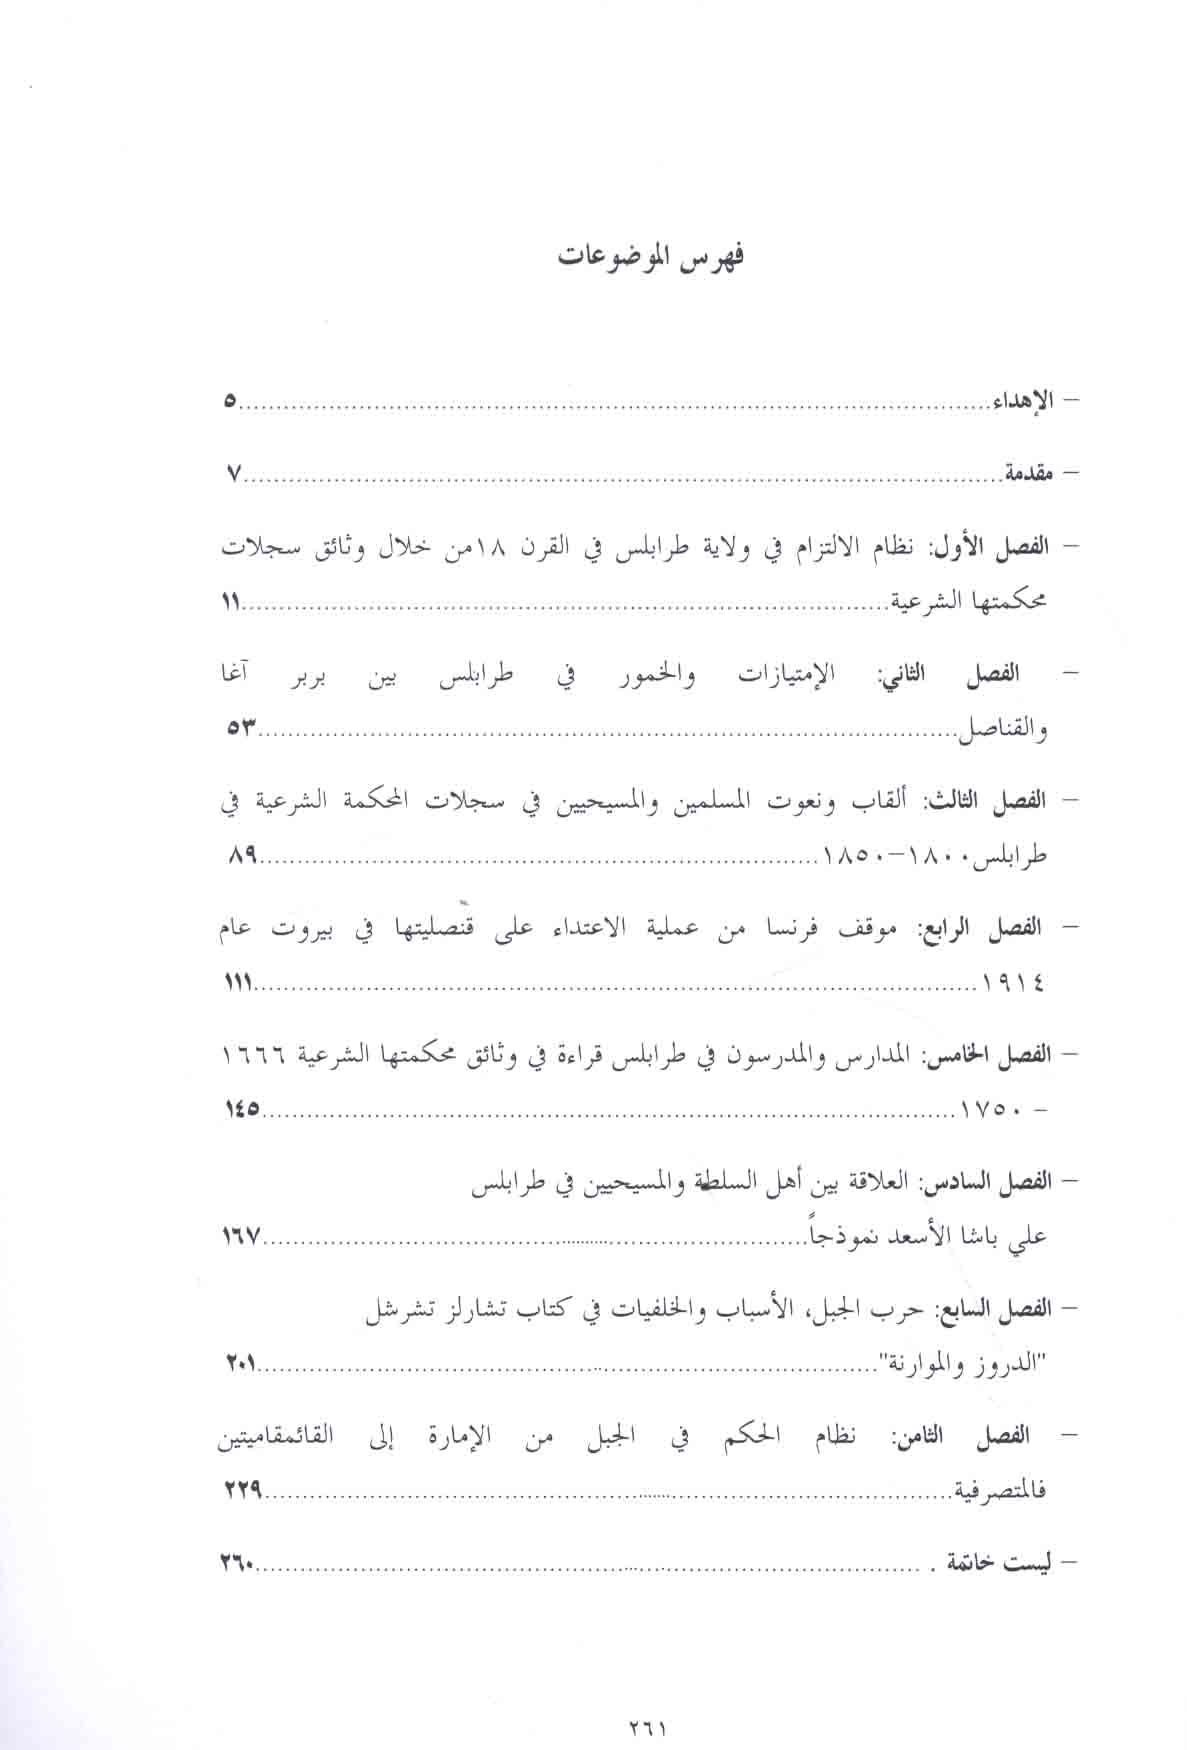 فهرس الموضوعات
– الإهداء................................................................٥
– مقدمة................................................................٧
– الفصل الأول: نظام الالتزام في ولاية طرابلس في القرن ١٨من خلال وثائق سجلات
محكمتها الشرعية................................................................١١
– الفصل الثاني: الإمتيازات والخمور في طرابلس بين بربر آغا
والقناصل................................................................٥٣
– الفصل الثالث: ألقاب ونعوت المسلمين والمسيحيين في سجلات المحكمة الشرعية في
طرابلس١٨٠٠–١٨٥٠................................................................٨٩
– الفصل الرابع: موقف فرنسا من عملية الاعتداء على قنصليتها في بيروت عام
١٩١٤................................................................١١١
– الفصل الخامس: المدارس والمدرسون في طرابلس قراءة في وثائق محكمتها الشرعية ١٦٦٦
– ١٧٥٠................................................................١٤٥
– الفصل السادس: العلاقة بين أهل السلطة والمسيحيين في طرابلس
علي باشا الأسعد نموذجاً................................................................١٦٧
– الفصل السابع: حرب الجبل، الأسباب والخلفيات في كتاب تشارلز تشرشل
"الدروز والموارنة"................................................................٢٠١
– الفصل الثامن: نظام الحكم في الجبل من الإمارة إلى القائمقاميتين
فالمتصرفية................................................................٢٢٩
– ليست خاتمة . ................................................................٢٦٠
٢٦١